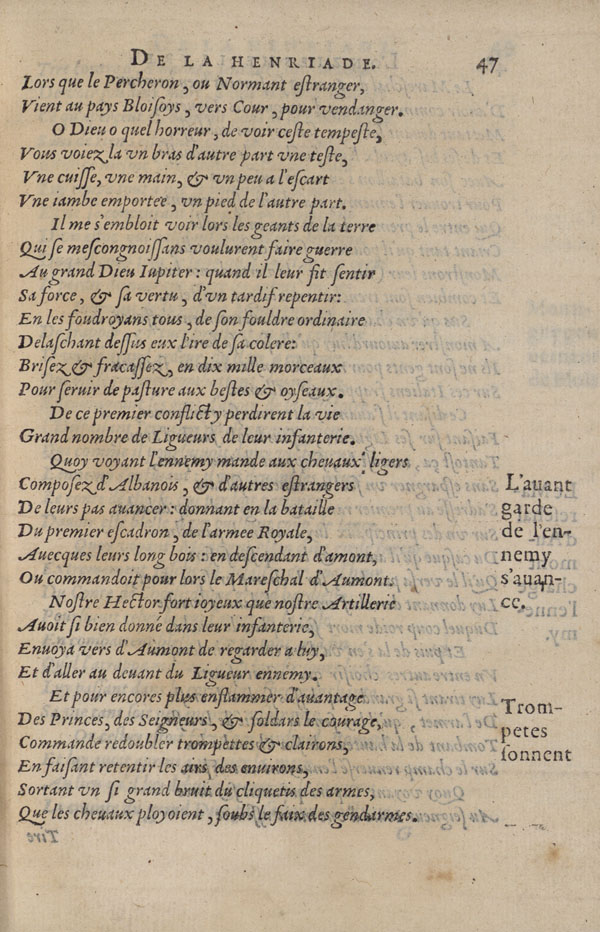 DE LA HENRIADE. 47
Lors que le Percheron, ou Normant estranger,
Vient au pays Bloisoys, vers Cour, pour vendanger.
O Dieu o quel horreur, de voir ceste tempeste,
Vous voiez la vn bras d'autre part vne teste,
Vne cuisse, vne main, & vn peu a l'escart
Vne iambe emportee, vn pied de l'autre part.
Il me s'embloit voir lors les geants de la terre
Qui se mescongnoissans voulurent faire guerre
Au grand Dieu Iupiter: quand il leur fit sentir
Sa force, & sa vertu, d'vn tardif repentir:
En les foudroyans tous, de son fouldre ordinaire
Delaschant dessus eux l'ire de sa colere:
Brisez & fracassez, en dix mille morceaux
Pour seruir de pasture aux bestes & oyseaux.
De ce premier conflict y perdirent la vie
Grand nombre de Ligueurs de leur infanterie.
Quoy voyant l'ennemy mande aux cheuaux ligers
Composez d'Albanois, & d'autres estrangers
De leurs pas auancer: donnant en la bataille
Du premier escadron, de l'armee Royale,
Auecques leurs long bois: en descendant d'amont,
Ou commandoit pour lors le Mareschal d'Aumont.
Nostre Hector fort ioyeux que nostre Artillerie
Auoit si bien donné dans leur infanterie,
Enuoya vers d'Aumont de regarder a luy,
Et d'aller au deuant du Ligueur ennemy.
Et pour encores plus enflammer d'auantage
Des Princes, des Seigneurs, & soldars le courage,
Commande redoubler trompettes & clairons,
En faisant retentir les airs des enuirons,
Sortant vn si grand bruit du cliquetis des armes,
Que les cheuaux ployoient, soubs le faix des gendarmes.
Tire
L'auant
garde
de l'en-
nemy
s'auan-
ce.
Trom-
petes
sonnent